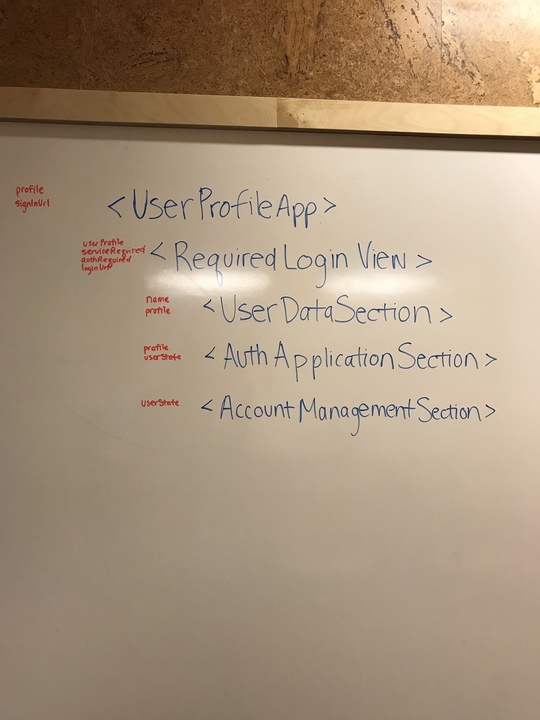 profile
signInUrl
<UserProfileApp>
userProfile
serviceRequired
authRequired
loginUrl
<RequiredLoginView>
name
profile
<UserDataSection>
profile
userState
<AuthApplicationSection>
userState
<AccountManagementSection>